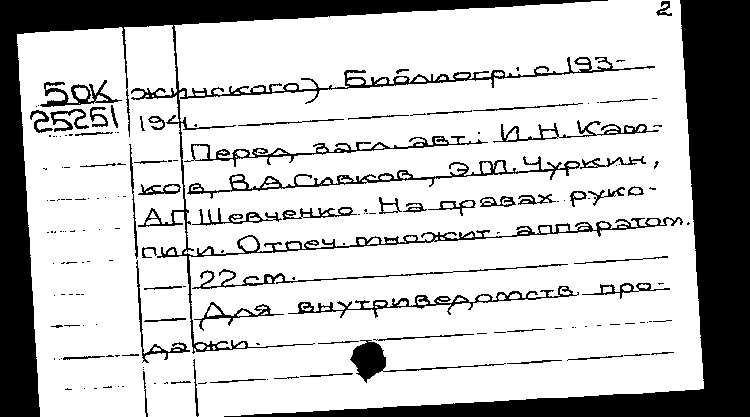 2
50К жинского). Библиогр.: с. 193-
25251 194.
Перед загл. авт.: И.Н. Кат-
ков, В.А. Сивков, Э.М. Чуркин,
А.П. Шевченко. На правах руко-
писи. Отпеч. множит. аппаратом.
22 см.
Для внутриведомств про-
дажи.